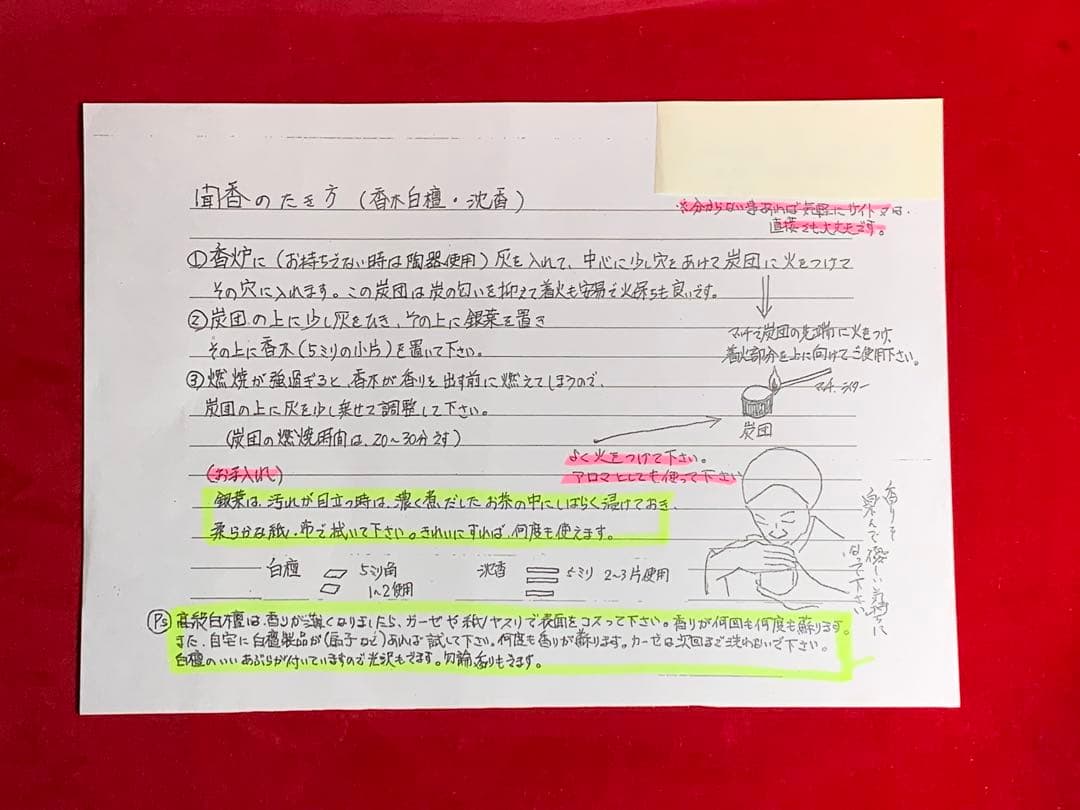 聞香のたき方（香木白檀・沈香）
※分からない事あれば気軽にサイト又は、
直接でも大丈夫です。
①香炉に（お持ちえない時は陶器使用）灰を入れて、中心に少し穴をあけて炭団に火をつけて
その穴に入れます。この炭団は炭の匂いを抑えて着火も安易で火保ちも良いです。
②炭団の上に少し灰をひき、その上に銀葉を置き
その上に香木（5ミリの小片）を置いて下さい。
③燃焼が強過ぎると、香木が香りを出す前に燃えてしまうので、
炭団の上に灰を少し乗せて調整して下さい。
（炭団の燃焼時間は、20〜30分です）
マッチで炭団の先端に火をつけ、
着火部分を上に向けてご使用下さい。
マッチ、ライター
炭団
よく火をつけて下さい。
アロマとしても使って下さい
（お手入れ）
銀葉は、汚れが目立つ時は、濃く煮だしたお茶の中にしばらく浸けておき、
柔らかな紙・布で拭いて下さい。きれいにすれば、何度も使えます。
香りを
楽しんで優しい気持ちに
なって下さい
白檀 5ミリ角
1〜2使用
沈香 5ミリ 2〜3片使用
Ps 高級白檀は、香りが無くなりましたら、ガーゼや紙（ヤスリ）で表面をコスって下さい。香りが何回も何度も蘇ります。
また、自宅に白檀製品が（扇子など）あれば試して下さい。何度も香りが蘇ります。ガーゼは次回まで洗わないで下さい。
白檀のいいあぶらが付いていますので光沢もでます。勿論香りもでます。